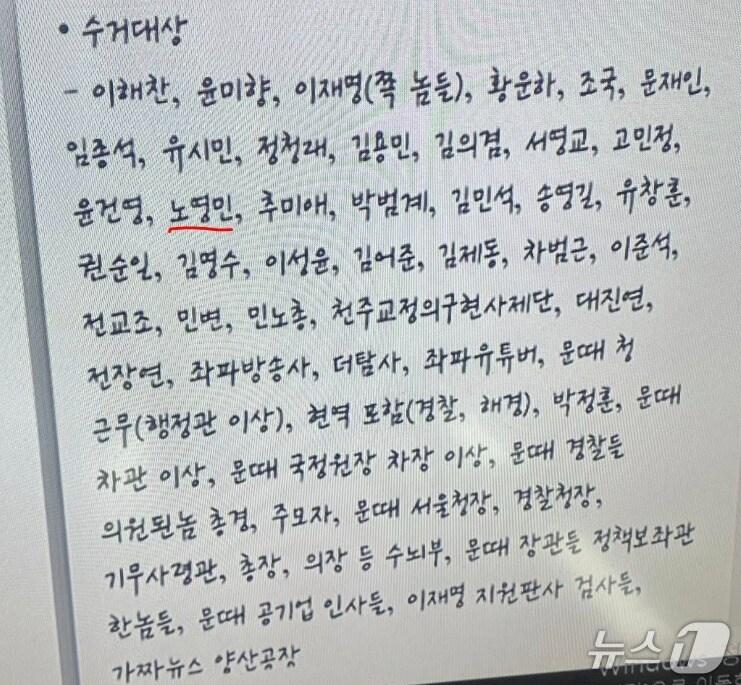 • 수거대상
- 이해찬, 윤미향, 이재명(쪽 놈들), 황운하, 조국, 문재인,
임종석, 유시민, 정청래, 김용민, 김의겸, 서영교, 고민정,
윤건영, 노영민, 추미애, 박범계, 김민석, 송영길, 유창훈,
권순일, 김명수, 이성윤, 김어준, 김제동, 차범근, 이준석,
전교조, 민변, 민노총, 천주교정의구현사제단, 대진연,
전장연, 좌파방송사, 더탐사, 좌파유튜버, 문때 청
근무(행정관 이상), 현역 포함(경찰, 해경), 박정훈, 문때
차관 이상, 문때 국정원장 차장 이상, 문때 경찰들
의원된놈 총경, 주모자, 문때 서울청장, 경찰청장,
기무사령관, 총장, 의장 등 수뇌부, 문때 장관들 정책보좌관
한놈들, 문때 공기업 인사들, 이재명 지원판사 검사들,
가짜뉴스 양산공장
뉴스1
Windows 정